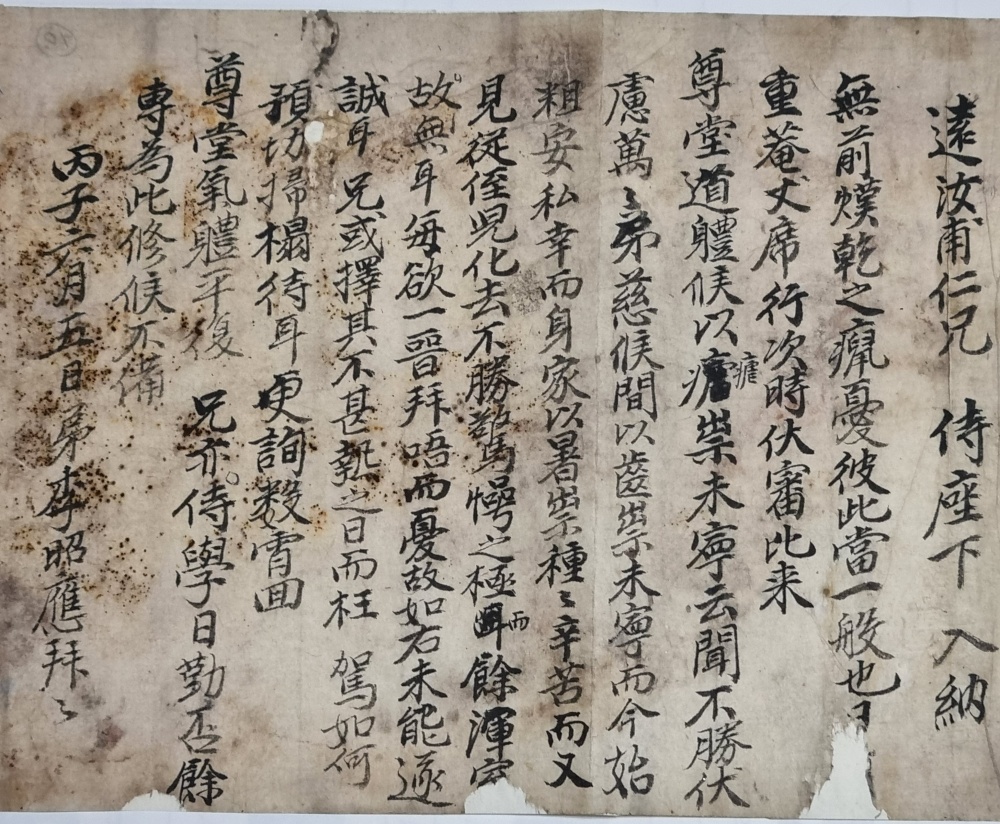 遠汝甫仁兄 侍座下 入納
無前熯乾之癙憂彼此當一般也
重菴丈席行次時伏審比来
尊堂道體候以瘧祟未寧云聞不勝伏
慮萬〻弟慈候間以齒祟未寧而今始
粗安私幸而身家以暑祟種〻辛苦而又
見從侄児化去不勝驚愕之極而餘渾
故無耳每欲一晉拜唔而憂故如右未能遂
誠耳 兄或擇其不甚熱之日而枉 駕如何
預切掃榻待耳更詢數霄回
尊堂氣體平復 兄亦侍學日勤否餘
專為此修候不備
丙子六月五日弟李昭應拜〻